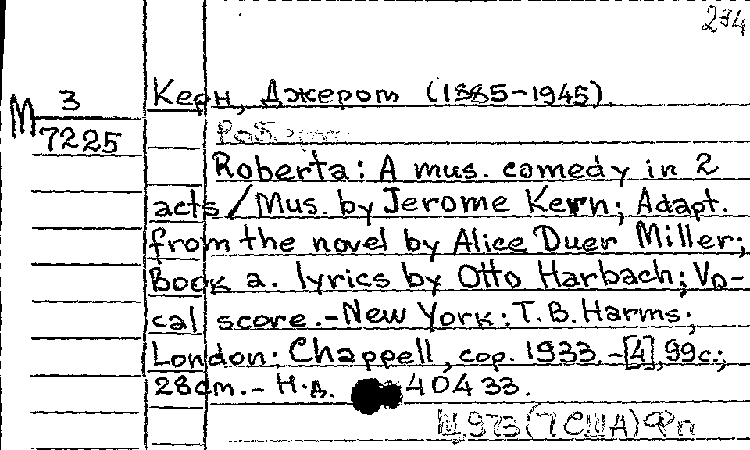 234
Керн, Джером (1885-1945).
М 3
7225
Роберта
Roberta: A mus. comedy in 2
acts / Mus. by Jerome Kern; Adapt.
from the novel by Alice Duer Miller;
Book a. lyrics by Otto Harbach; Vo-
cal score.-New York: T.B. Harms;
London: Chappell, cop. 1933.-[4],99c.;
28cm.- Н.д. 40433.
Щ973(7США)Фп